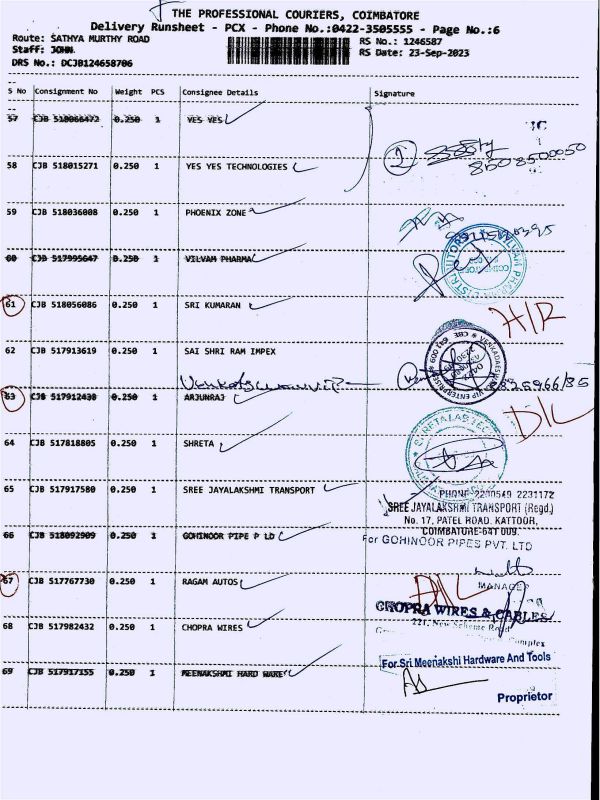 THE PROFESSIONAL COURIERS, COIMBATORE
Delivery Runsheet - PCX - Phone No.:0422-3505555 - Page No.:6
Route: SATHYA MURTHY ROAD RS No.: 1246587
Staff: JOHN RS Date: 23-Sep-2023
DRS No.: DCJB124658706
S No Consignment No Weight PCS Consignee Details Signature
57 CJB 518066472 0.250 1 YES YES
58 CJB 518015271 0.250 1 YES YES TECHNOLOGIES
8508500050
59 CJB 518036008 0.250 1 PHOENIX ZONE
60 CJB 517995647 0.250 1 VILVAM PHARMA
61 CJB 518056086 0.250 1 SRI KUMARAN
62 CJB 517913619 0.250 1 SAI SHRI RAM IMPEX
63 CJB 517912438 0.250 1 ARJUNRAJ
D/L
64 CJB 517818805 0.250 1 SHRETA
65 CJB 517917580 0.250 1 SREE JAYALAKSHMI TRANSPORT
PHONE 2200549 2231172
SREE JAYALAKSHMI TRANSPORT (Regd.)
No. 17, PATEL ROAD, KATTOOR,
COIMBATORE-641 009.
66 CJB 518092909 0.250 1 GOHINOOR PIPE P LD
For GOHINOOR PIPES PVT. LTD
MANAGER
67 CJB 517767730 0.250 1 RAGAM AUTOS
D/L
68 CJB 517982432 0.250 1 CHOPRA WIRES
CHOPRA WIRES & CABLES
221, New Scheme Road
Complex
69 CJB 517917155 0.250 1 MEENAKSHMI HARD WARE
For Sri Meenakshi Hardware And Tools
Proprietor